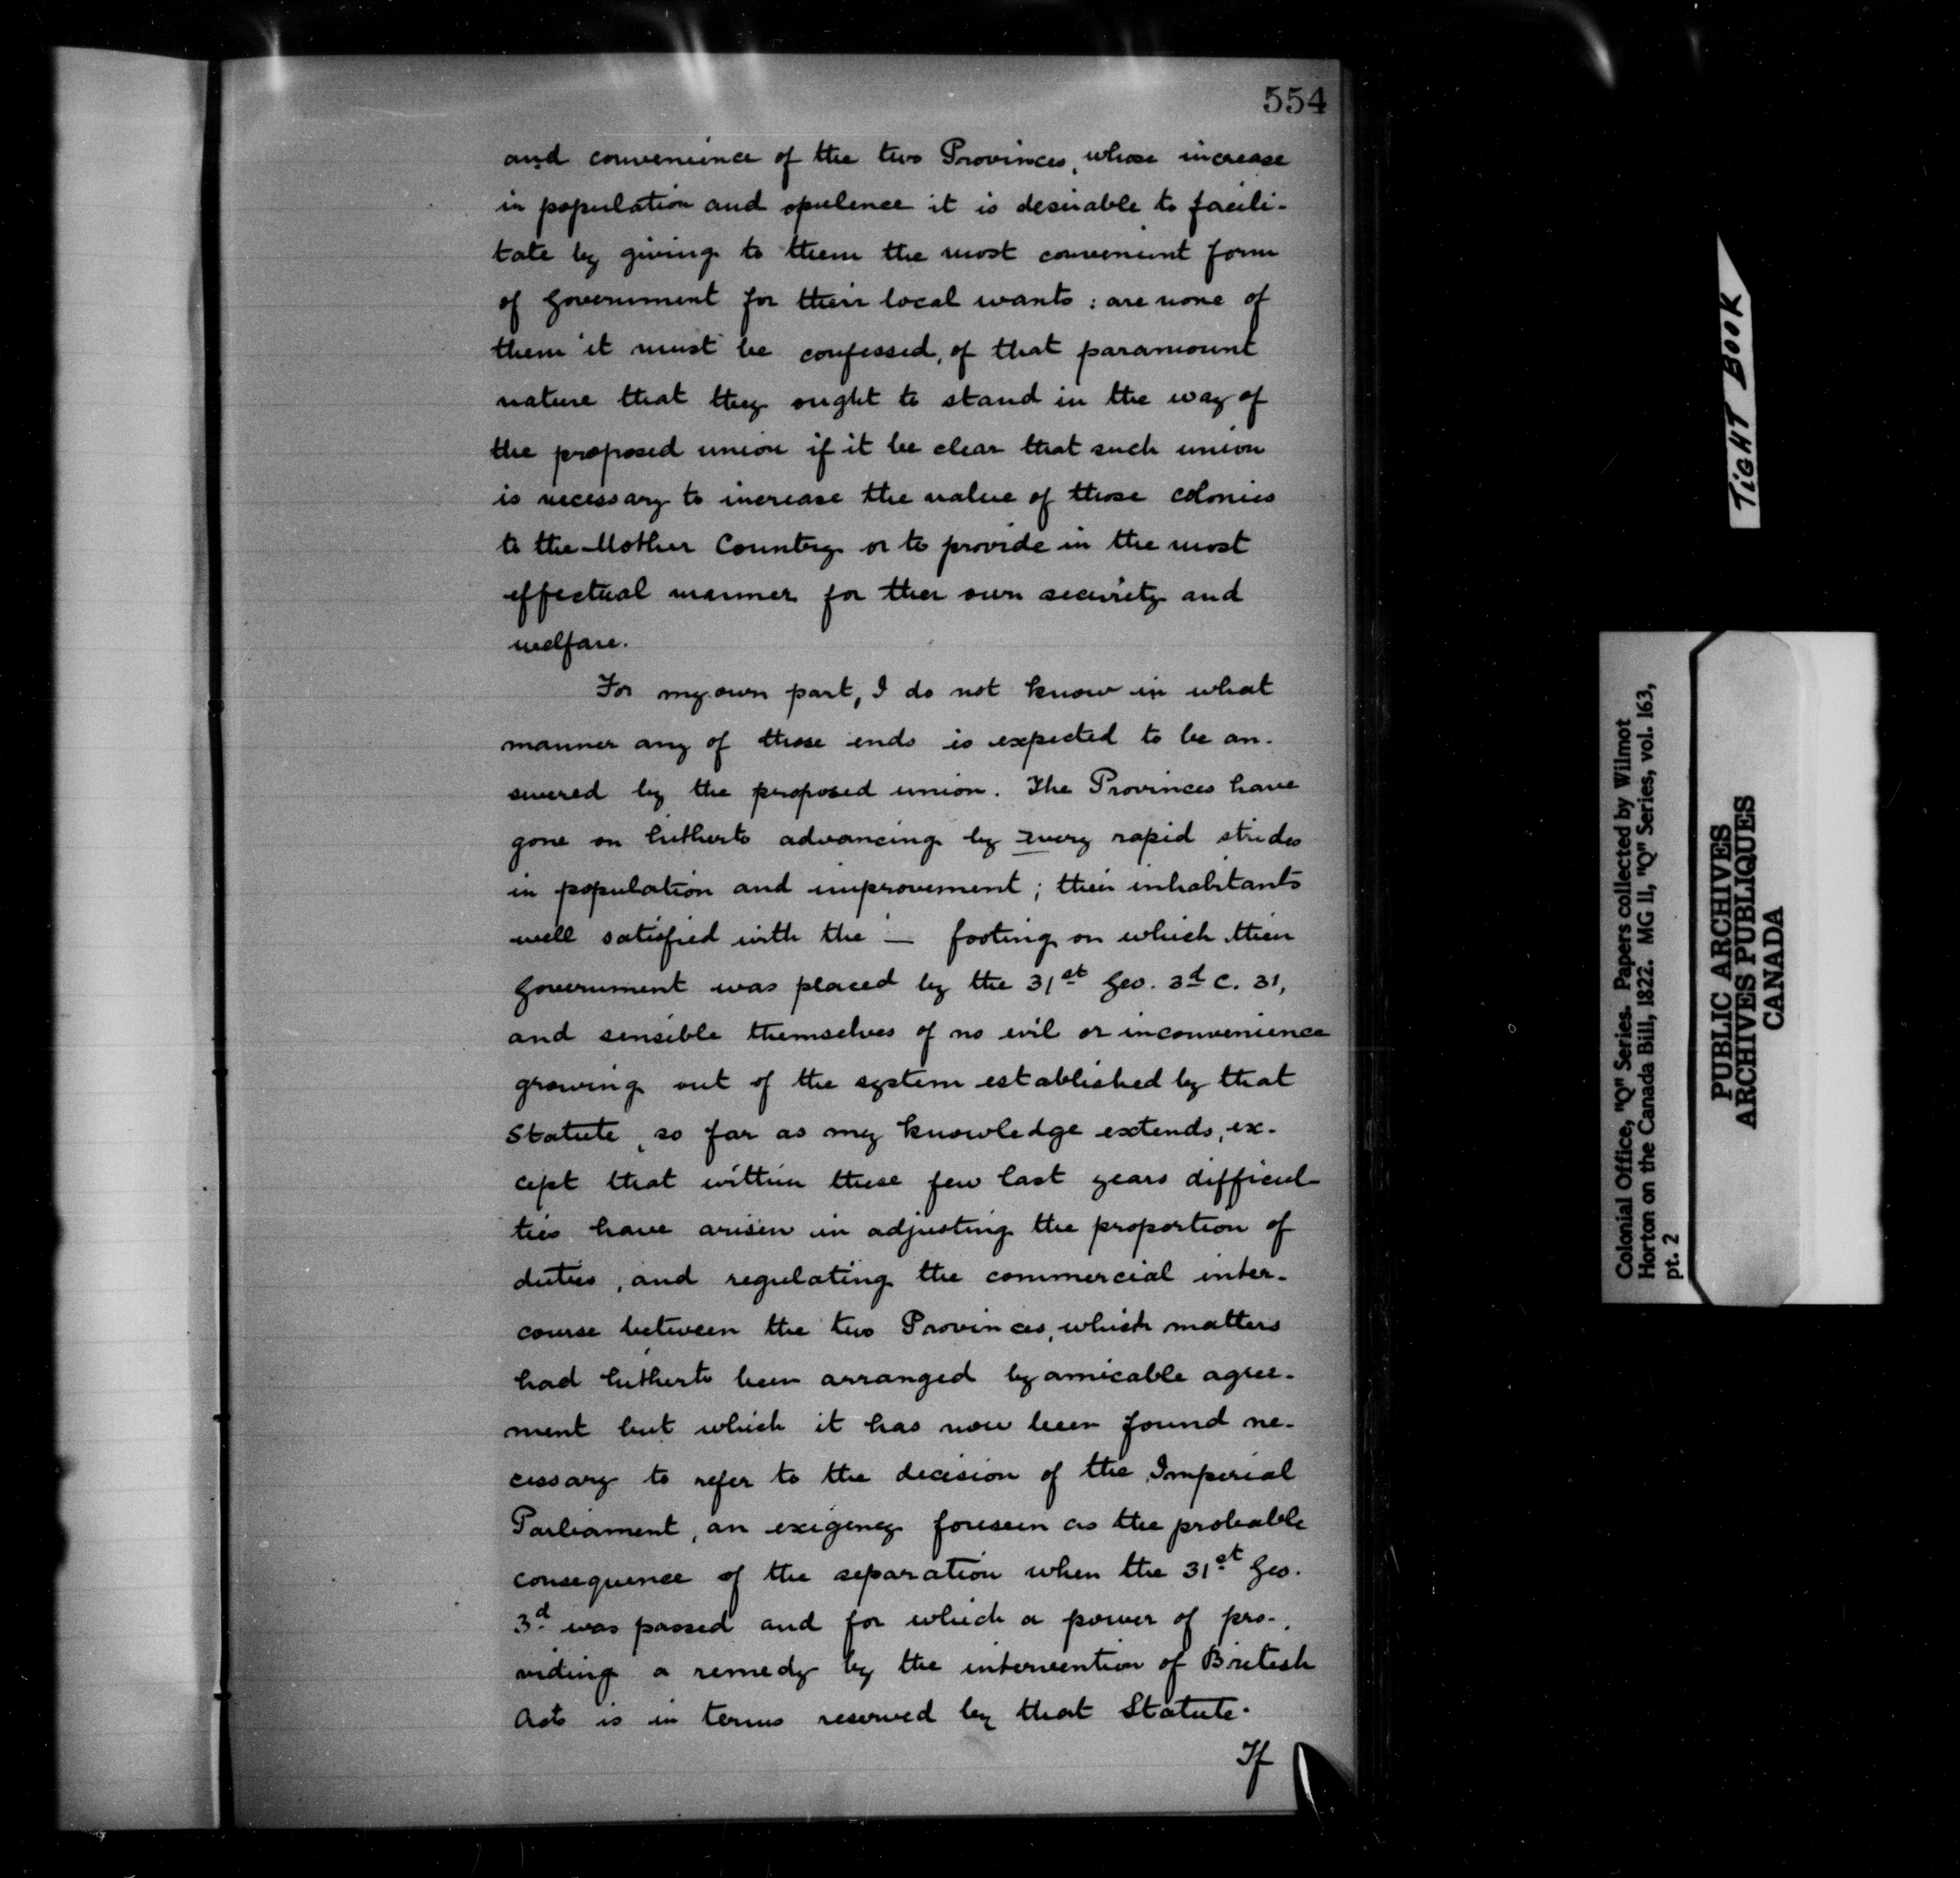 554
and convenience of the two Provinces, whose increase
in population and opulence it is desirable to facili-
tate by giving to them the most convenient form
of government for their local wants : are none of
them it must be confessed, of that paramount
nature that they ought to stand in the way of
the proposed union if it be clear that such union
is necessary to increase the value of those colonies
to the Mother Country or to provide in the most
effectual manner for their own security and
welfare.
For my own part, I do not know in what
manner any of those ends is expected to be an-
swered by the proposed union. The Provinces have
gone on hitherto advancing by every rapid strides
in population and improvement ; their inhabitants
well satisfied with the — footing on which their
government was placed by the 31st Geo. 3d c. 31,
and sensible themselves of no evil or inconvenience
growing out of the system established by that
Statute, so far as my knowledge extends, ex-
cept that within these few last years difficul-
ties have arisen in adjusting the proportion of
duties, and regulating the commercial inter-
course between the two Provinces, which matters
had hitherto been arranged by amicable agree-
ment but which it has now been found ne-
cessary to refer to the decision of the Imperial
Parliament, an exigency foreseen as the probable
consequence of the separation when the 31st Geo.
3d was passed and for which a power of pro-
viding a remedy by the intervention of British
Acts is in terms reserved by that Statute.
If
TIGHT BOOK
Colonial Office, "Q" Series. Papers collected by Wilmot
Horton on the Canada Bill, 1822. MG 11, "Q" Series, vol. 163,
pt. 2
PUBLIC ARCHIVES
ARCHIVES PUBLIQUES
CANADA